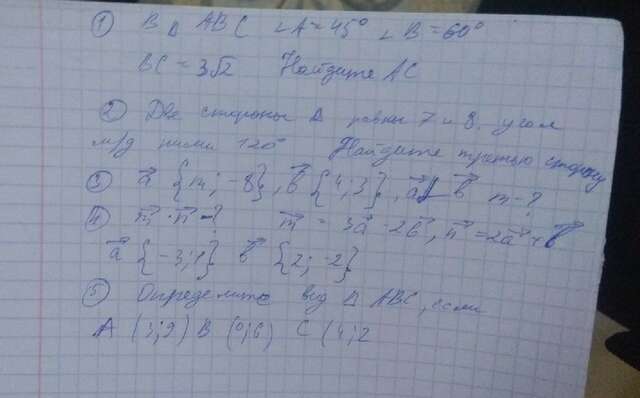 ① В Δ ABC ∠A=45° ∠B=60°
BC=3√2 Найдите AC
② Две стороны Δ равны 7 и 8. угол
м/д ними 120° Найдите третью сторону
③ a⃗ {m; -8}, b⃗ {4; 3}, a⃗ ⊥ b⃗ m-?
④ m⃗·n⃗-? m⃗ = 3a⃗-2b⃗, n⃗=2a⃗+b⃗
a⃗ {-3;1} b⃗ {2;-2}
⑤ Определите вид Δ ABC, если
A (3;9) B (0;6) C (4;2